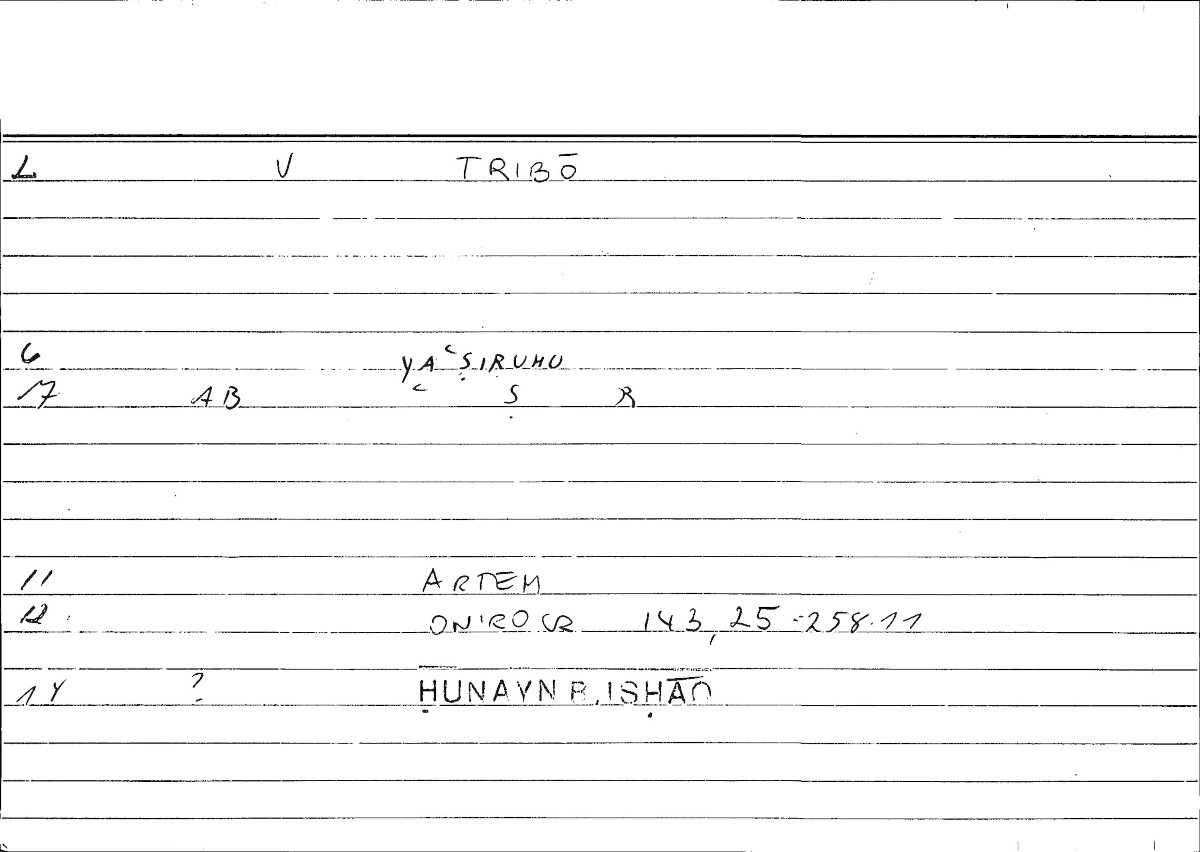 1 V TRIBŌ
6 YAʿṢIRUHU
17 AB ʿ Ṣ R
11 ARTEM
12 ONIROCR 143,25-258.11
14 ? ḤUNAYN B. ISḤĀQ